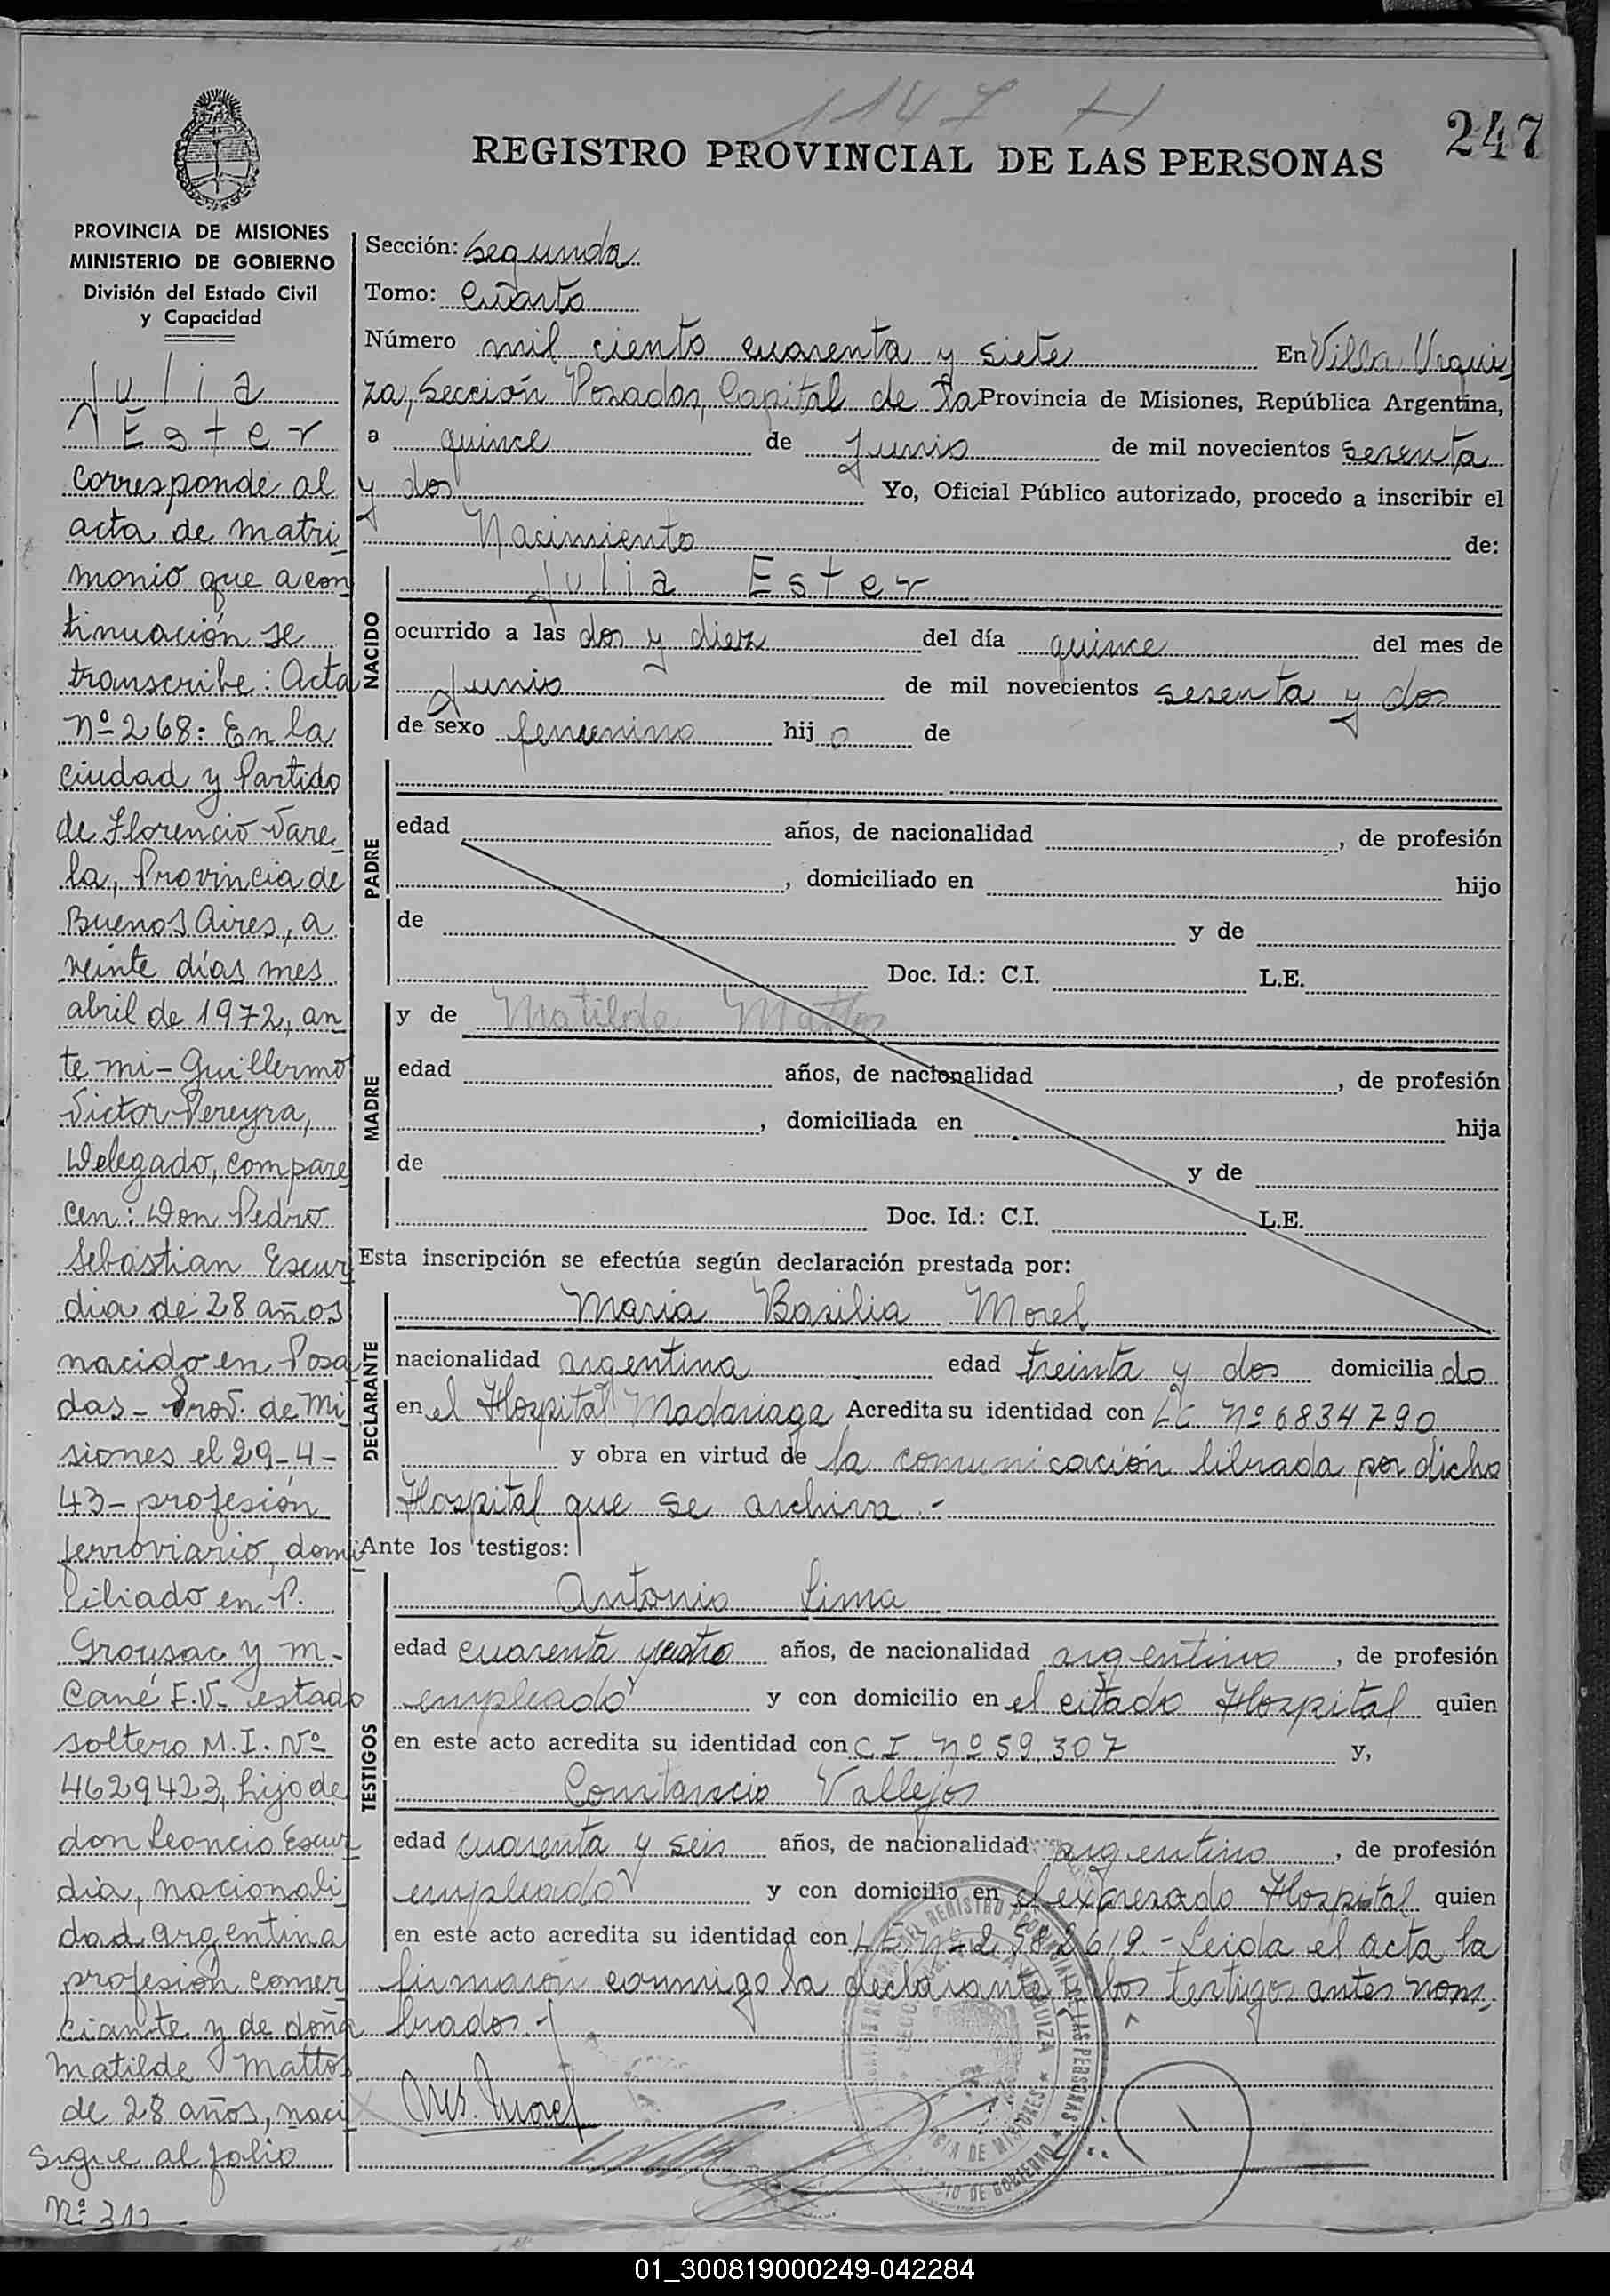 1147 H
247
REGISTRO PROVINCIAL DE LAS PERSONAS
PROVINCIA DE MISIONES
MINISTERIO DE GOBIERNO
División del Estado Civil
y Capacidad
Julia
Ester
Corresponde al
acta de matri
monio que a con
tinuación se
transcribe: Acta
Nº 268: En la
Ciudad y Partido
de Florencio Vare
la, Provincia de
Buenos Aires, a
veinte días mes
abril de 1972, an
te mi - Guillermo
Victor Pereyra,
Delegado, compare
cen: Don Pedro
Sebastian Escur
dia de 28 años
nacido en Posa
das - Prov. de Mi
siones el 29-4-
43 - profesión
ferroviario, domi
ciliado en P.
Grousac y M-
Cané F.V- estado
soltero M.I. Nº
4629423, hijo de
don Leoncio Escur
dia, nacionali
dad argentina
profesión comer
ciante y de doña
Matilde Mattos
de 28 años, naci
sigue al folio
Nº 312 -
Sección: Segunda
Tomo: Cuarto
Número mil ciento cuarenta y siete En Villa Urqui
za, Sección Posadas, Capital de la Provincia de Misiones, República Argentina,
a quince de Junio de mil novecientos sesenta
y dos Yo, Oficial Público autorizado, procedo a inscribir el
Nacimiento de:
NACIDO
Julia Ester
ocurrido a las dos y diez del día quince del mes de
Junio de mil novecientos sesenta y dos
de sexo femenino hij a de
PADRE
edad años, de nacionalidad , de profesión
, domiciliado en hijo
de y de
Doc. Id.: C.I. L.E.
MADRE
y de Matilde Mattos
edad años, de nacionalidad , de profesión
, domiciliada en hija
de y de
Doc. Id.: C.I. L.E.
Esta inscripción se efectúa según declaración prestada por:
DECLARANTE
Maria Basilia Morel
nacionalidad argentina edad treinta y dos domicilia do
en el Hospital Madariaga Acredita su identidad con LC Nº 6834790
y obra en virtud de la comunicación librada por dicho
Hospital que se archiva.-
Ante los testigos:
TESTIGOS
Antonio Lima
edad cuarenta y cuatro años, de nacionalidad argentino, de profesión
empleado y con domicilio en el citado Hospital quien
en este acto acredita su identidad con C I. Nº 59.307 y,
Constancio Vallejos
edad cuarenta y seis años, de nacionalidad argentino, de profesión
empleado y con domicilio en el expresado Hospital quien
en este acto acredita su identidad con L.E. Nº 2.582619.- Leida el acta la
firmaron conmigo la declarante y los testigos antes nom
brados.-
Ms. Morel
01_300819000249-042284